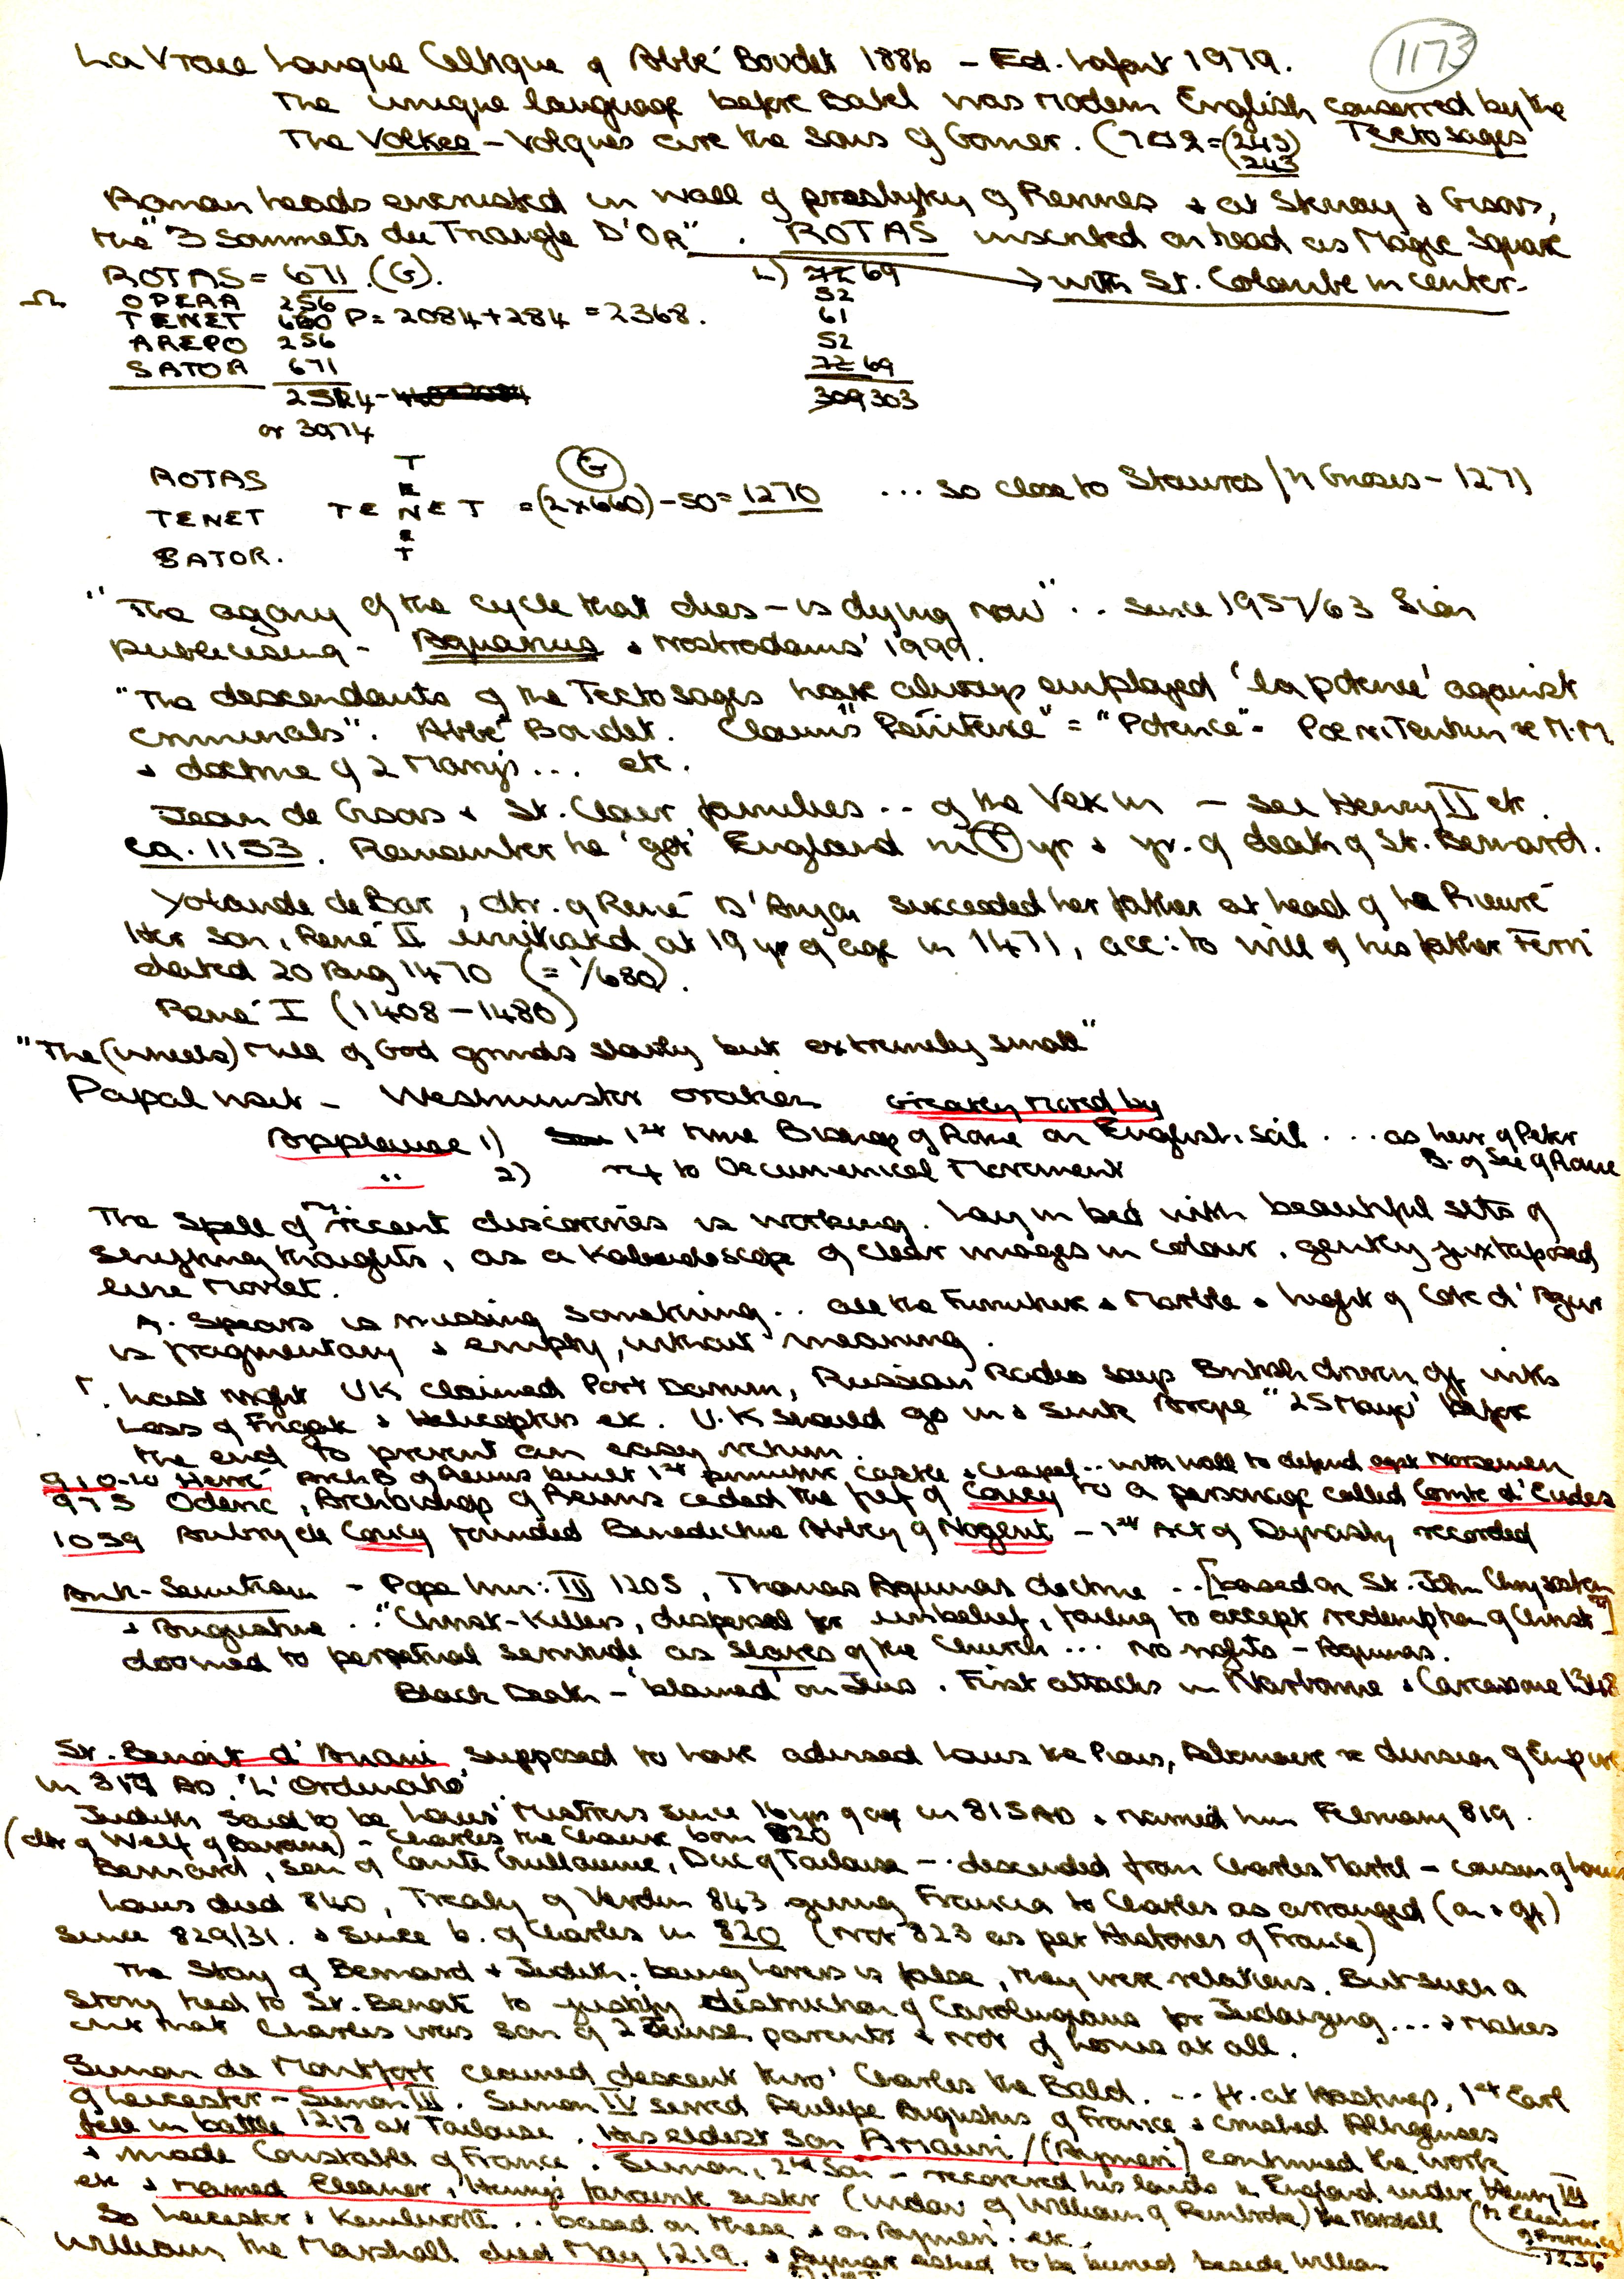 La Vraie Langue Celtique of Abbé Boudet 1886 – Ed. Lafont 1979. 1173
The unique language before Babel was Modern English conserved by the Tectosages
The Volkae – Volques are the sons of Gomer. (702 = (243) 243
Roman heads encrusted in wall of presbytry of Rennes & at Stenay & Gisors,
the "3 Sommets du Triangle D'OR". ROTAS inscribed on head as Magic Square
→ with St. Colombe in center.
ROTAS = 671. (G). L) 72 69
OPERA 256 52
TENET 660 P = 2084 + 284 = 2368. 61
AREPO 256 52
SATOR 671 72 69
2514 – 309 303
or 3974
ROTAS
TENET
SATOR.
T
E
TENET = (2 x 660) – 50 = 1270 ... so close to Stauros / H Gnosis – 1271
E
T
G
"The agony of the cycle that dies – is dying now" .. since 1957/63 Sion
publicising – Aquarius & Nostradamus' 1999.
"The descendants of the Tectosages have always employed 'la potence' against
criminals". Abbé Boudet. Claims "Penitence" = "Potence" – re M.M
& doctrine of 2 Marys ... etc.
Jean de Gisors & St. Clair families .. of the Vexin – see Henry II etc.
ca. 1153. Remember he 'got' England in yr & yr. of death of St. Bernard.
Yolande de Bar, dtr. of René D'Anjou succeeded her father at head of he Prieuré
Her son, René II initiated at 19 yr of age in 1471, acc: to will of his father Ferri
dated 20 Aug 1470 (= 1/680).
René I (1408 – 1480)
"The (wheels) mill of God grinds slowly but extremely small"
Papal visit – Westminster oration greatly moved by
Applause 1) 1st time Bishop of Rome on English soil ... as heir of Peter
B. of See of Rome
" 2) ref to Oecumenical Movement
The spell of my recent discoveries is working. Lay in bed with beautiful sets of
thoughts, as a Kaleidoscope of clear images in colour, gently juxtaposed
like
A. Spears is missing something .. all the Furniture & Marble & light of Cote d'Azur
is fragmentary & empty, without meaning.
Last night UK claimed Port Darwin, Russian Radio says British driven off with
Loss of Frigate & Helicopters etc. U.K should go in & sink "25 Mayo" before
the end to prevent an easy return.
910-20 Hervé Arch.B of Reims built 1st primitive castle & Chapel .. with wall to defend agst Norsemen
975 Oderic, Archbishop of Reims ceded the fief of Coucy to a personage called Comte d'Eudes
1059 Aubry de Coucy founded Benedictine Abbey of Nogent – 1st Act of Dynasty recorded
Anti-Semitism – Pope Inn: III 1205, Thomas Aquinas doctrine .. [based on St. John Chrysostom
& Augustine .. "Christ-Killers, dispersed for unbelief, failing to accept redemption of Christ"]
doomed to perpetual servitude as slaves of the Church ... no rights – Aquinas.
Black Death – 'blamed' on Jews. First attacks in Narbonne & Carcassone 1348
St. Benoit d'Aniani, supposed to have advised Louis the Pious, re division of Empire
in 817 AD. 'L'Ordinatio'
Judith said to be Louis' Mistress since 16 yrs of age in 815 AD & married him February 819.
(dtr of Welf of Bavaria) – Charles the Chauve born 820
Bernard, son of Comte Guillaume, Duc of Toulouse – descended from Charles Martel – cousin of Louis
Louis died 840, Treaty of Verdun 843 giving Francia to Charles as arranged (on & off)
since 829/31. & since b. of Charles in 820 (not 823 as per Histories of France)
The Story of Bernard & Judith being lovers is false, they were relations. But such a
story tied to St. Benoit to justify destruction of Carolingians for Judaizing ... & makes
out that Charles was son of 2 Jewish parents & not of Louis at all.
Simon de Montfort claimed descent thro' Charles the Bald. .. ft. at Hastings, 1st Earl
of Leicester – Simon III. Simon IV served Philipe Augustus of France & crushed Albigenses
fell in battle 1218 at Toulouse. His eldest son Amauri / (Aymeri) continued the work
& made Constable of France. Simon, 2nd Son – recovered his lands in England under Henry III
etc & married Eleanor, Henry's favourite sister (widow of William of Pembroke) the Marshall (to Eleanor of Provence 1236
So Leicester & Kenilworth .. based on these & on Aymeri. etc.
William the Marshall died May 1219. & Aymar asked to be buried beside William